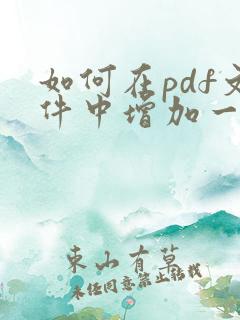 如何在pdf文
件中增加一
东山有草
未经同意禁止转载